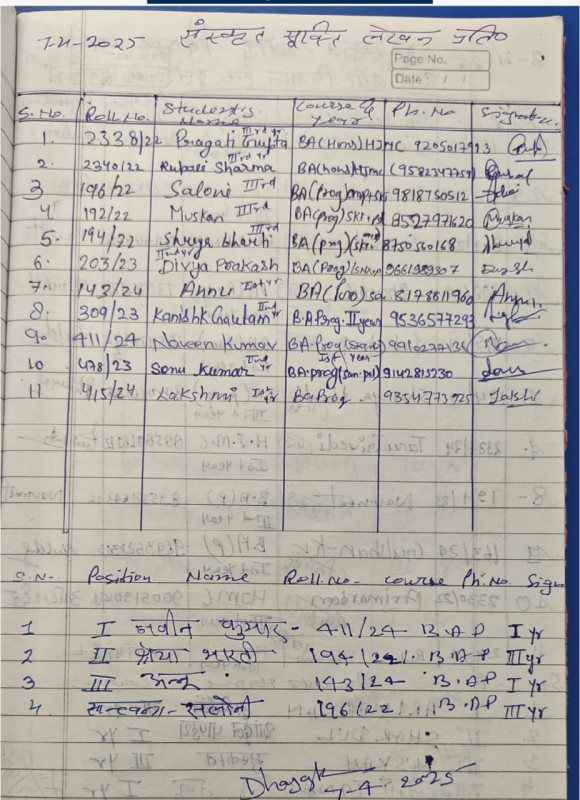 7-4-2025 संस्कृत सूक्ति लेखन प्रति०
Page No.
Date / /
S.No. Roll No. Student's Name Course & year Ph. No Signature
1. 2338/22 Pragati Gupta IIIrd yr BA(Hons)HJMC 9205017993
2. 2340/22 Rupali Sharma IIIrd yr BA(hons)HJMC
3 196/22 Saloni IIIrd BA(Prog) 9818750512
4 192/22 Muskan IIIrd BA(prog) 8527971620 Muskan
5. 194/22 Shreya bharti IIIrd yr BA(prog) 8750560168
6. 203/23 Divya Prakash IInd yr BA(Prog)
7. 143/24 Annu Ist yr BA(Pro) 8178811960 Annu
8. 309/23 Kanishk Gautam IInd yr B.A Prog. II year 9536577293
9. 411/24 Naveen Kumar BA.Prog Ist year
10 478/23 Sonu Kumar IInd yr BA.prog 9142815230
11 415/24 Lakshmi Ist yr BaProg 9354773925
S.N. Position Name Roll.No. course Ph.No. Sign
1 I नवीन कुमार - 411/24 - B.A P I yr
2 II श्रेया भारती 194/22 . B.A P III yr
3 III अन्नू . 143/24 - B.A P I yr
4 सान्त्वना - सलोनी 196/22 B.A P III yr
7-4-2025